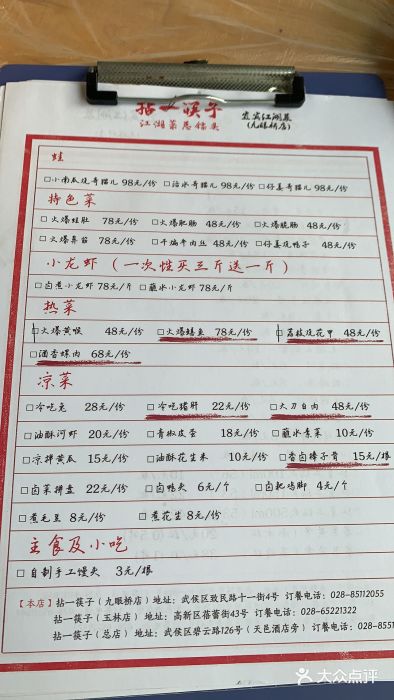 拈一筷子
江湖菜总舵头
农家江湖菜
(九眼桥店)
蛙
□小南瓜烧哥猫儿 98元/份 □泡水哥猫儿 98元/份 □仔姜哥猫儿 98元/份
特色菜
□火爆蛙肚 78元/份 □火爆肥肠 48元/份 □火爆脆肠 48元/份
□火爆鼻筋 78元/份 □干煸牛肉丝 48元/份 □仔姜烧鸭子 48元/份
小龙虾(一次性买三斤送一斤)
□卤煮小龙虾 78元/斤 □蘸水小龙虾 78元/斤
热菜
□火爆黄喉 48元/份 □火爆鳝鱼 78元/份 □荔枝烧花甲 48元/份
□酒香螺肉 68元/份
凉菜
□冷吃兔 28元/份 □冷吃猪肝 22元/份 □大刀白肉 48元/份
□油酥河虾 20元/份 □青椒皮蛋 18元/份 □蘸水素菜 10元/份
□凉拌黄瓜 15元/份 □油酥花生米 10元/份 □香卤棒子骨 15元/根
□卤菜拼盘 22元/份 □卤鸭头 6元/个 □卤粑鸡脚 4元/个
□煮毛豆 8元/份 □煮花生 8元/份
主食及小吃
□自制手工馒头 3元/根
【本店】拈一筷子(九眼桥店)地址:武侯区致民路十一街4号 订餐电话:028-85112055
拈一筷子(玉林店)地址:高新区蓓蕾街43号 订餐电话:028-65221322
拈一筷子(总店)地址:武侯区碧云路126号(天邑酒店旁)订餐电话:028-8551
大众点评